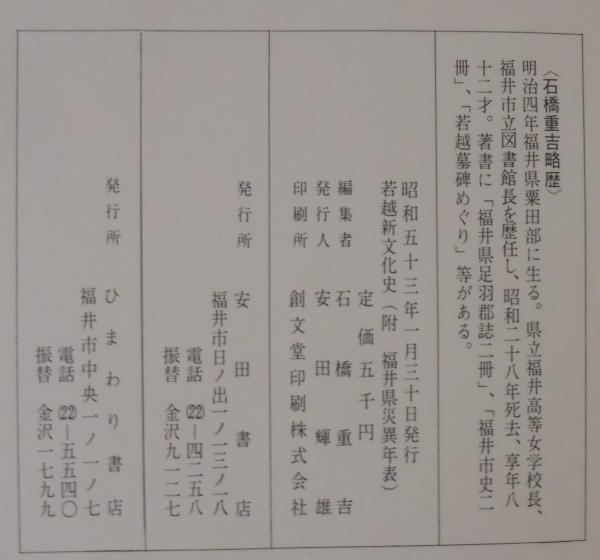 〈石橋重吉略歴〉
明治四年福井県粟田部に生る。県立福井高等女学校長、
福井市立図書館長を歴任し、昭和二十八年死去、享年八
十二才。著書に「福井県足羽郡誌二冊」、「福井市史二
冊」、「若越墓碑めぐり」等がある。
昭和五十三年一月三十日発行
若越新文化史(附 福井県災異年表)
定価五千円
編集者 石橋重吉
発行人 安田輝雄
印刷所 創文堂印刷株式会社
発行所 安田書店
福井市日ノ出一ノ一三ノ一八
電話 (22)―四二五八
振替 金沢九一二七
発行所 ひまわり書店
福井市中央一ノ一ノ七
電話 (22)―五五四〇
振替 金沢一七九九